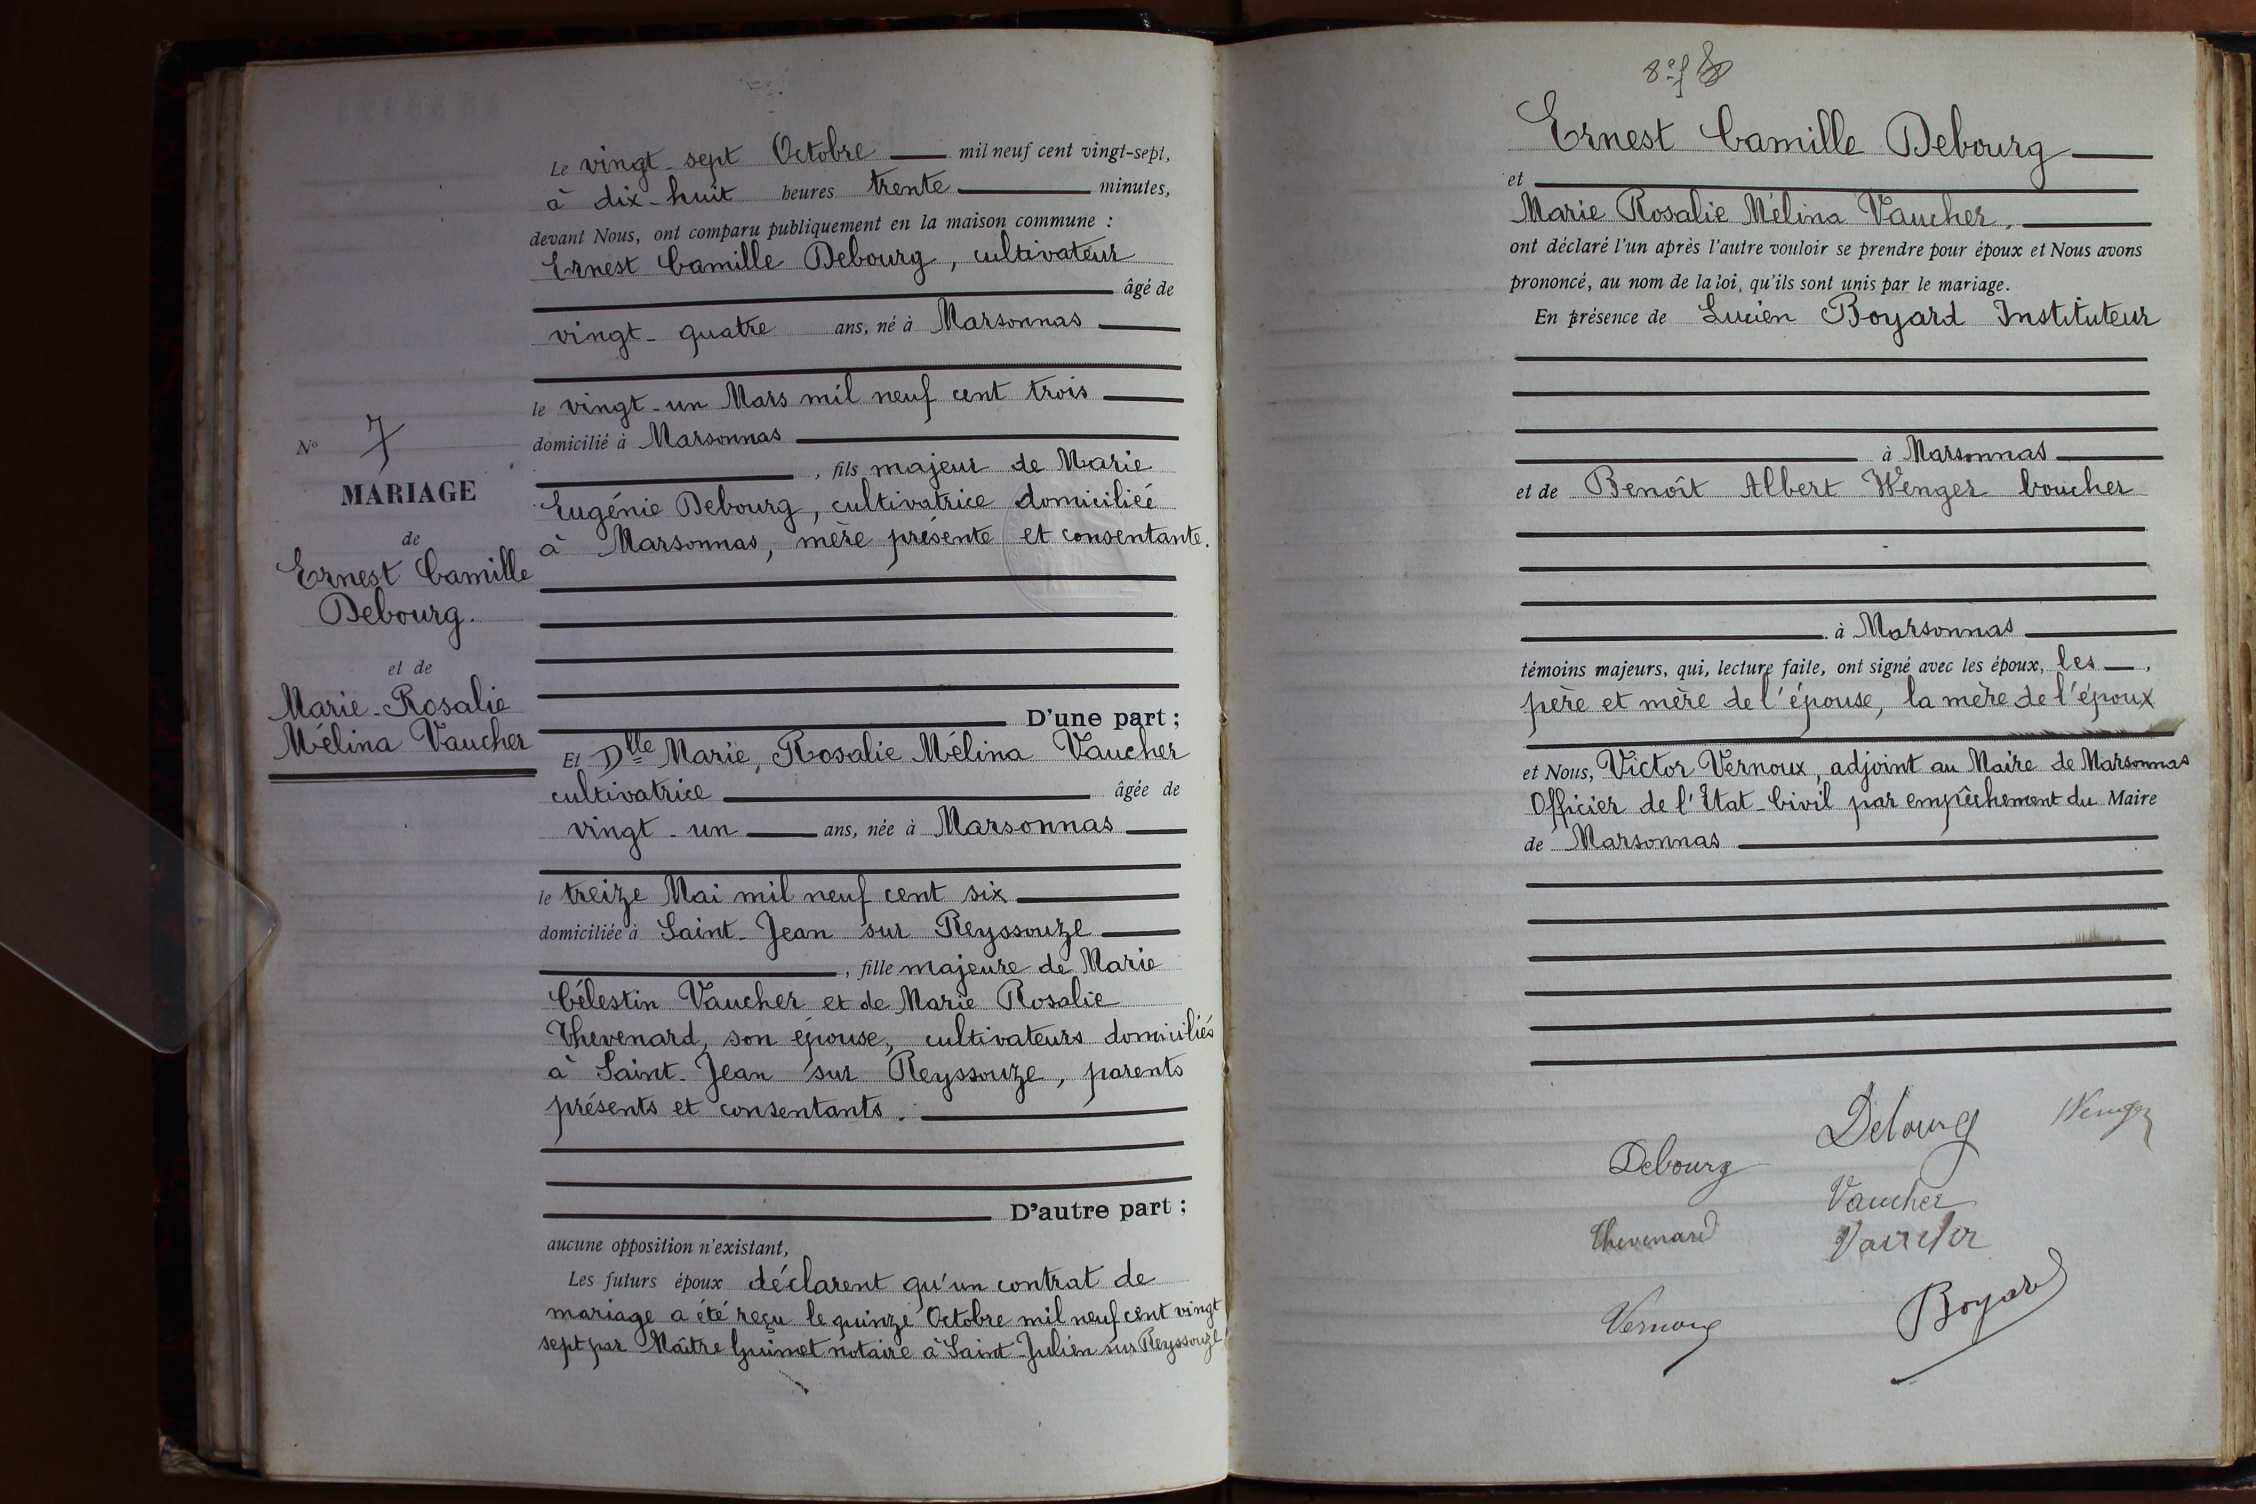 Le vingt-sept Octobre mil neuf cent vingt-sept,
à dix-huit heures trente minutes,
devant Nous, ont comparu publiquement en la maison commune :
Ernest Camille Debourg, cultivateur
âgé de
vingt-quatre ans, né à Marsonnas
le vingt-un Mars mil neuf cent trois
domicilié à Marsonnas
, fils majeur de Marie
Eugénie Debourg, cultivatrice domiciliée
à Marsonnas, mère présente et consentante.
D'une part ;
Et Dlle Marie, Rosalie Mélina Vaucher
cultivatrice âgée de
vingt-un ans, née à Marsonnas
le treize Mai mil neuf cent six
domiciliée à Saint-Jean sur Reyssouze
, fille majeure de Marie
Célestin Vaucher et de Marie Rosalie
Thevenard, son épouse, cultivateurs domiciliés
à Saint-Jean sur Reyssouze, parents
présents et consentants.
D'autre part ;
aucune opposition n'existant,
Les futurs époux déclarent qu'un contrat de
mariage a été reçu le quinze Octobre mil neuf cent vingt
sept par Maître Guimet notaire à Saint-Julien sur Reyssouze
No 7
MARIAGE
de
Ernest Camille
Debourg.
et de
Marie-Rosalie
Mélina Vaucher
8e f
Ernest Camille Debourg
et
Marie Rosalie Mélina Vaucher,
ont déclaré l'un après l'autre vouloir se prendre pour époux et Nous avons
prononcé, au nom de la loi, qu'ils sont unis par le mariage.
En présence de Lucien Boyard Instituteur
à Marsonnas
et de Benoît Albert Wenger boucher
à Marsonnas
témoins majeurs, qui, lecture faite, ont signé avec les époux, les ,
père et mère de l'épouse, la mère de l'époux
et Nous, Victor Vernoux, adjoint au Maire de Marsonnas
Officier de l'Etat-Civil par empêchement du Maire
de Marsonnas
Debourg Wenger
Debourg
Vaucher
Thevenard Vaucher
Vernoux Boyard